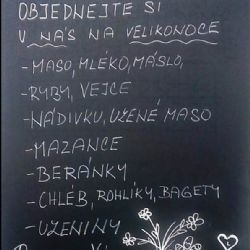 OBJEDNEJTE SI
U NÁS NA VELIKONOCE
-MASO, MLÉKO, MÁSLO,
-RYBY, VEJCE
-NÁDIVKU, UZENÉ MASO
-MAZANCE
-BERÁNKY
-CHLÉB, ROHLÍKY, BAGETY
-UZENINY